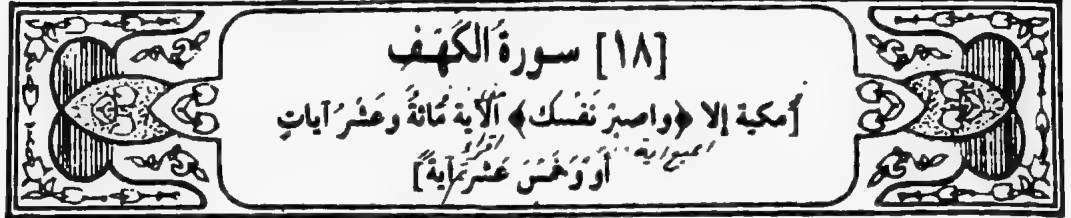 [١٨] سورة الكَهَف
[مكية إلا ﴿واصبر نَفْسَك﴾ الآية مائةٌ وعَشْرُ آياتٍ
أو وَخَمْسَ عَشْرَةَ آيةً]